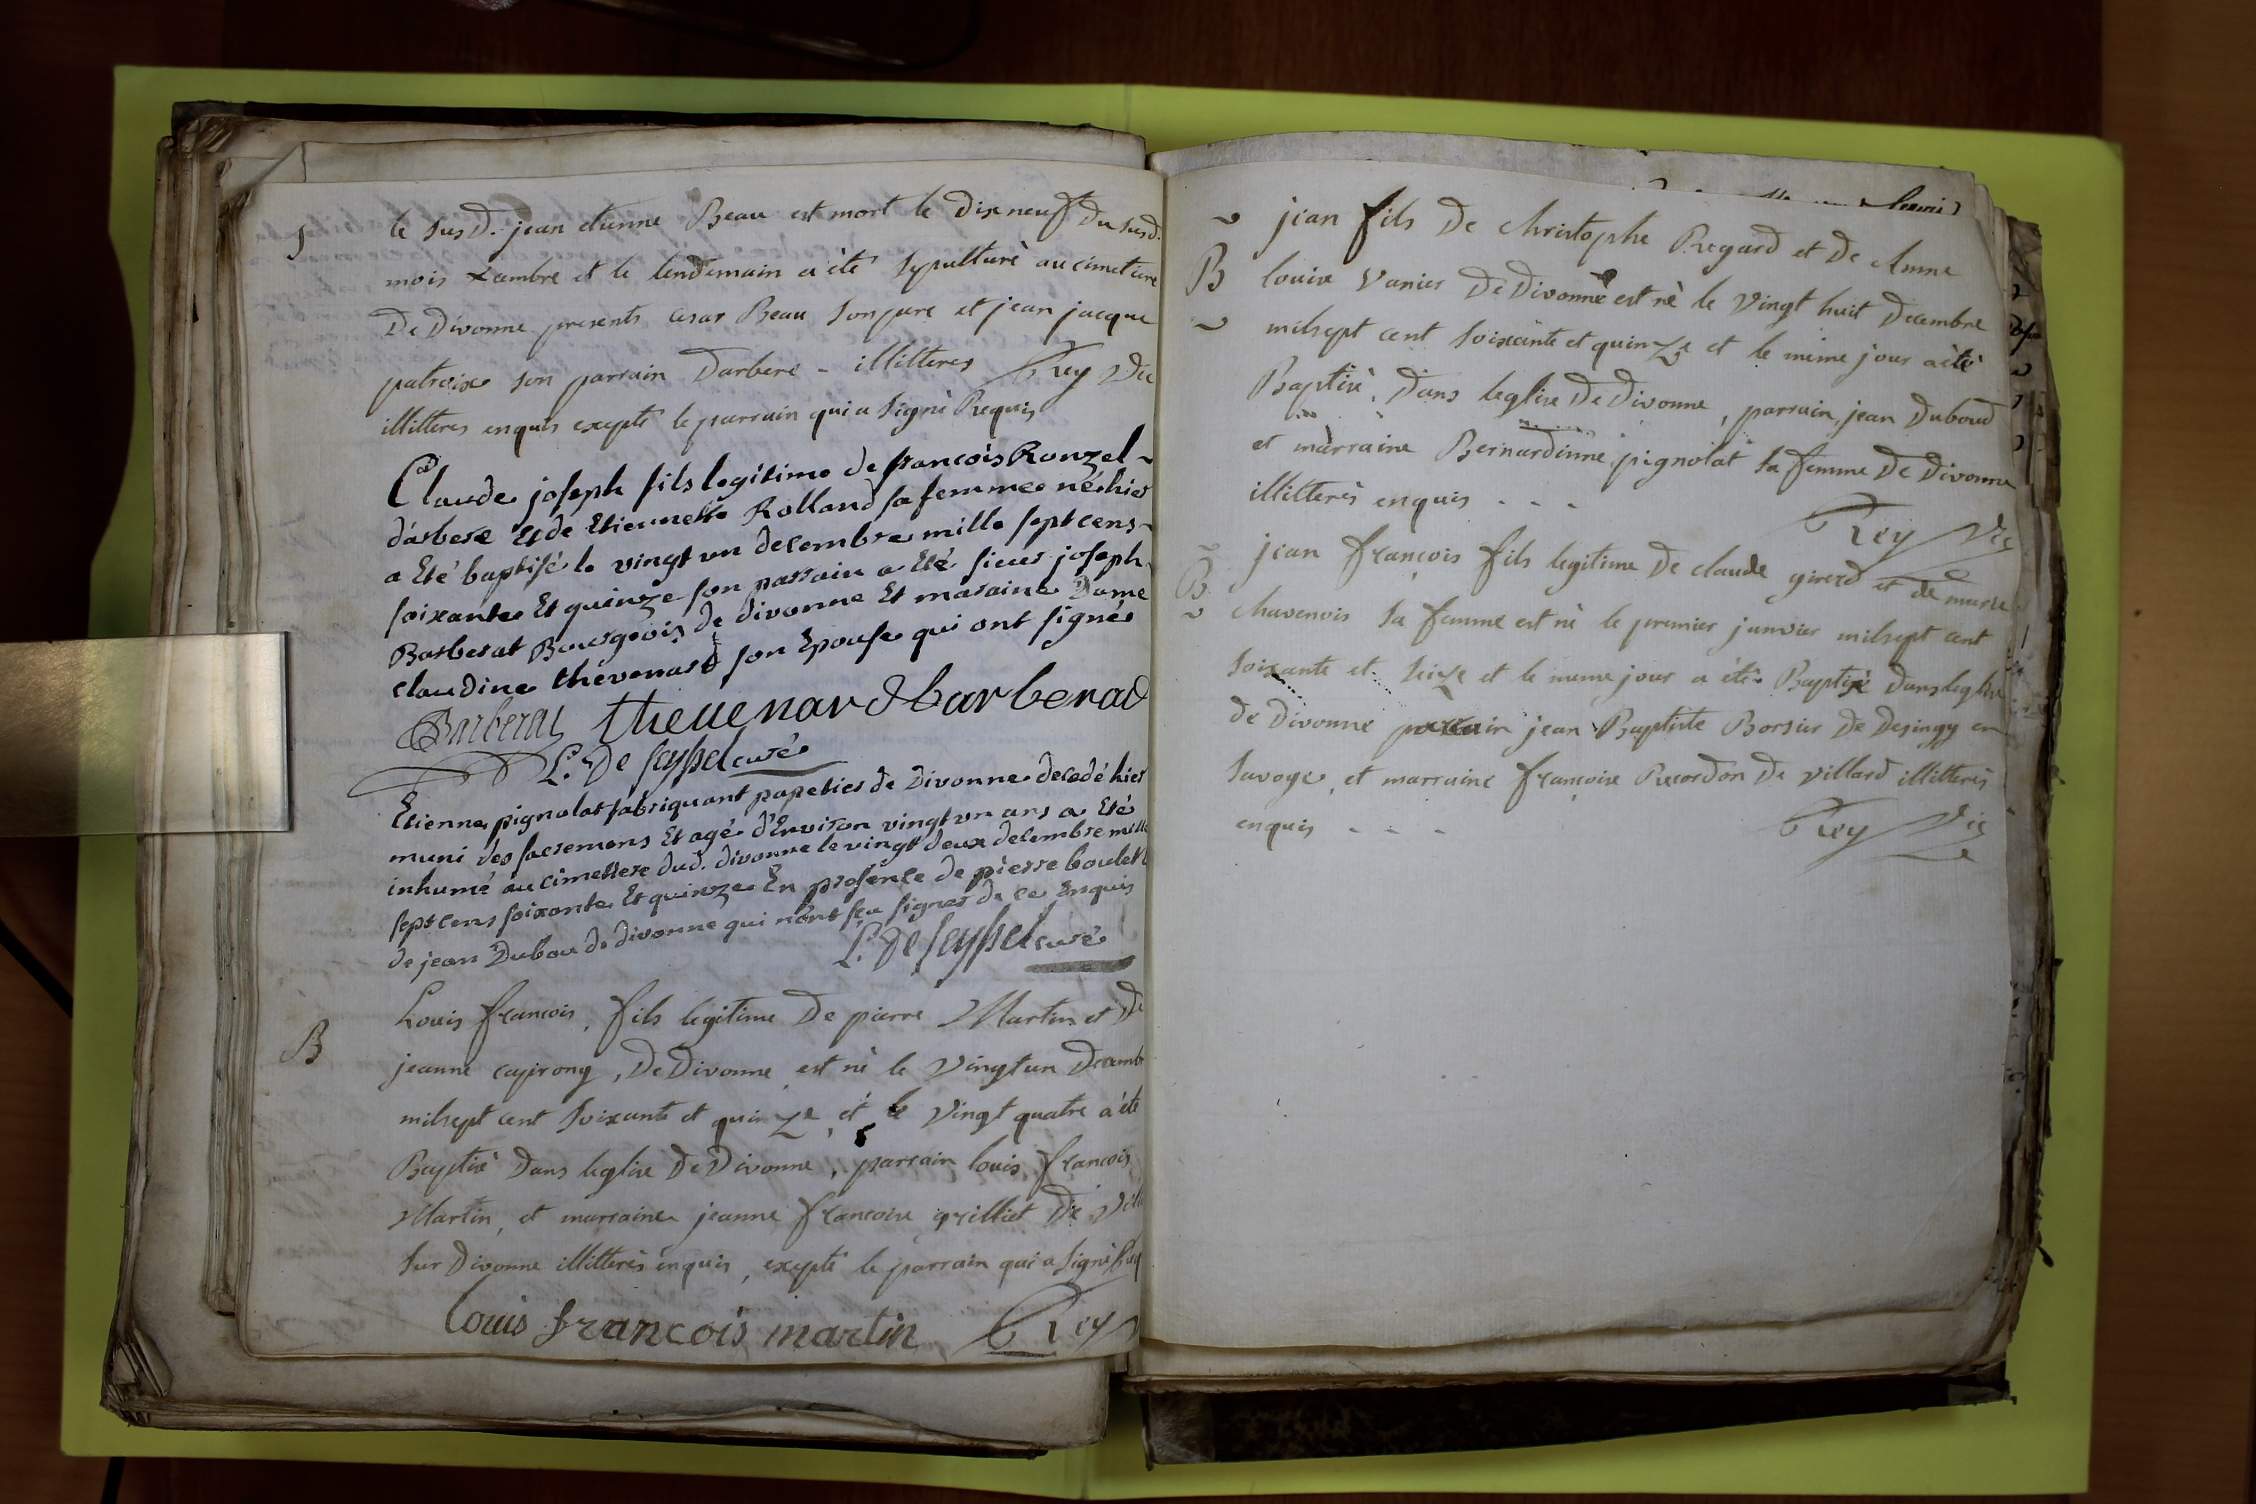 S
le susd. jean etienne Beau est mort le dix neuf du susd.
mois xambre et le lendemain a été sypulturè au cimetiere
De Divonne presents cesar Beau son pere et jean jacque
patroix son parrain Darbere - illitteres Rey Vic
illitteres enquis excepté le parrain qui a signè Requis
Claude joseph fils legitime de françois Ronzel -
d'arbere Et de Etiennette Rolland sa femme né hier
a Eté baptisé le vingt un decembre mille sept cens -
soixante Et quinze son parrain a Eté sieur joseph
Barberat Bourgeois de divonne Et maraine Dame
claudine thevenard son Epouse qui ont signés
Barberat thevenard barberad
L. De seyssel curé
Etienne pignolat fabriquant papetier de Divonne decedé hier
muni des sacremens Et agé d'Environ vingt un ans a Eté
inhumé au cimettere dud. divonne le vingt deux decembre mille
sept cens soixante Et quinze En présence de pierre boulet
de jean Dubou de divonne qui n'ont sçu signer de ce Enquis
L. De seyssel curé
B
Louis françois, fils legitime De pierre Martin et De
jeanne capirony, De Divonne est né le vingt un Decemb
milsept cent soixante et quinze, et le vingt quatre a été
Baptisé Dans leglise De Divonne, parrain louis françois
Martin, et marraine jeanne françoise grilliet De
sur Divonne illitterès enquis, excepté le parrain qui a signè Req
Louis françois martin Rey
jean fils De christophe Regard et De Anne
B
louise vanier De Divonne est nè le vingt huit Decembre
milsept cent soixante et quinze et le même jour a été
Baptisè, Dans leglise De Divonne, parrain, jean Duboud
et marraine Bernardinne pignolat sa femme De Divonne
illitterès enquis - - -
Rey Vic
jean françois fils legitime De claude girerd et de marie
B
chavenois sa femme est nè le premier janvier milsept cent
soixante et seize et le meme jour a été Baptisè Dans leglise
de Divonne parrain jean Baptiste Borsier De Desingy en
savoye, et marraine françoise Recordon De villard illitterès
enquis - - -
Rey Vic